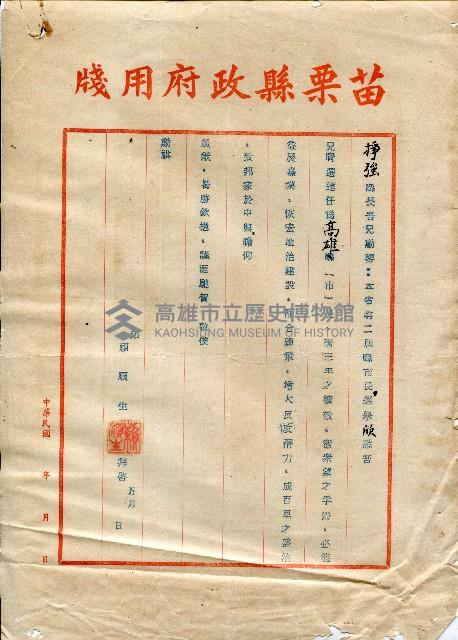 苗栗縣政府用牋
掙強縣長吾兄勛鑒:本省第二屆縣市長選舉,欣諗吾
兄膺選連任為高雄縣(市)長,著三年之績效,徵眾望之孚歸,必能
益展嘉謨,恢宏地治建設,配合國策,增大反攻潛力,成百里之盛治
,致邦家於中興,瞻仰
賢猷,曷勝欽遲,謹函馳賀,敬候
勛祺
弟 賴順生 拜啓 五月 日
中華民國 年 月 日
高雄市立歷史博物館
KAOHSIUNG MUSEUM OF HISTORY